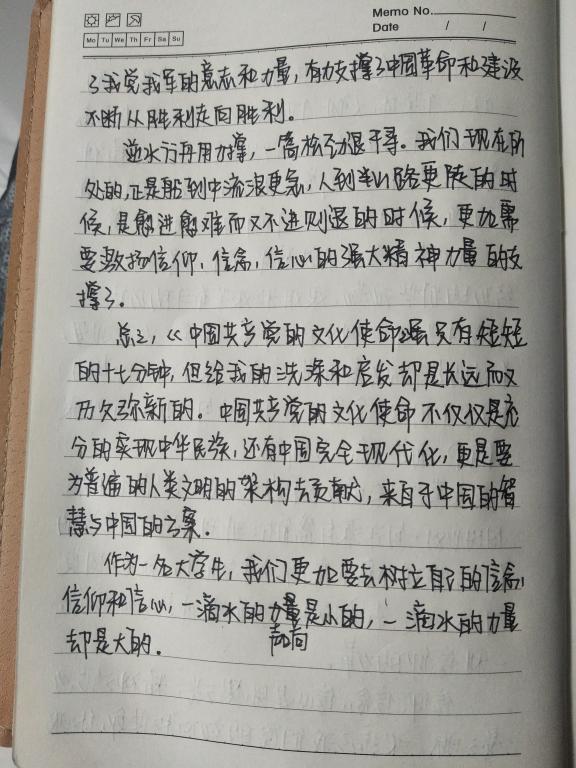 Memo No.
Date / /
Mo Tu We Th Fr Sa Su
了我党我军的意志和力量，有力支撑了中国革命和建设
不断从胜利走向胜利。
逆水行舟用力撑，一篙松劲退千寻。我们现在所
处的，正是船到中流浪更急，人到半山路更陡的时
候，是愈进愈难而又不进则退的时候，更加需
要激扬信仰、信念、信心的强大精神力量的支
撑了。
总之，《中国共产党的文化使命》虽只有短短
的十七分钟，但给我的洗涤和启发却是长远而又
历久弥新的。中国共产党的文化使命不仅仅是充
分的实现中华民族，还有中国完全现代化，更是要
为普遍的人类文明的架构去贡献，来自于中国的智
慧与中国的方案。
作为一名大学生，我们更加要去树立自己的信念，
信仰和信心，一滴水的力量是小的，一滴水的力量
却是大的。